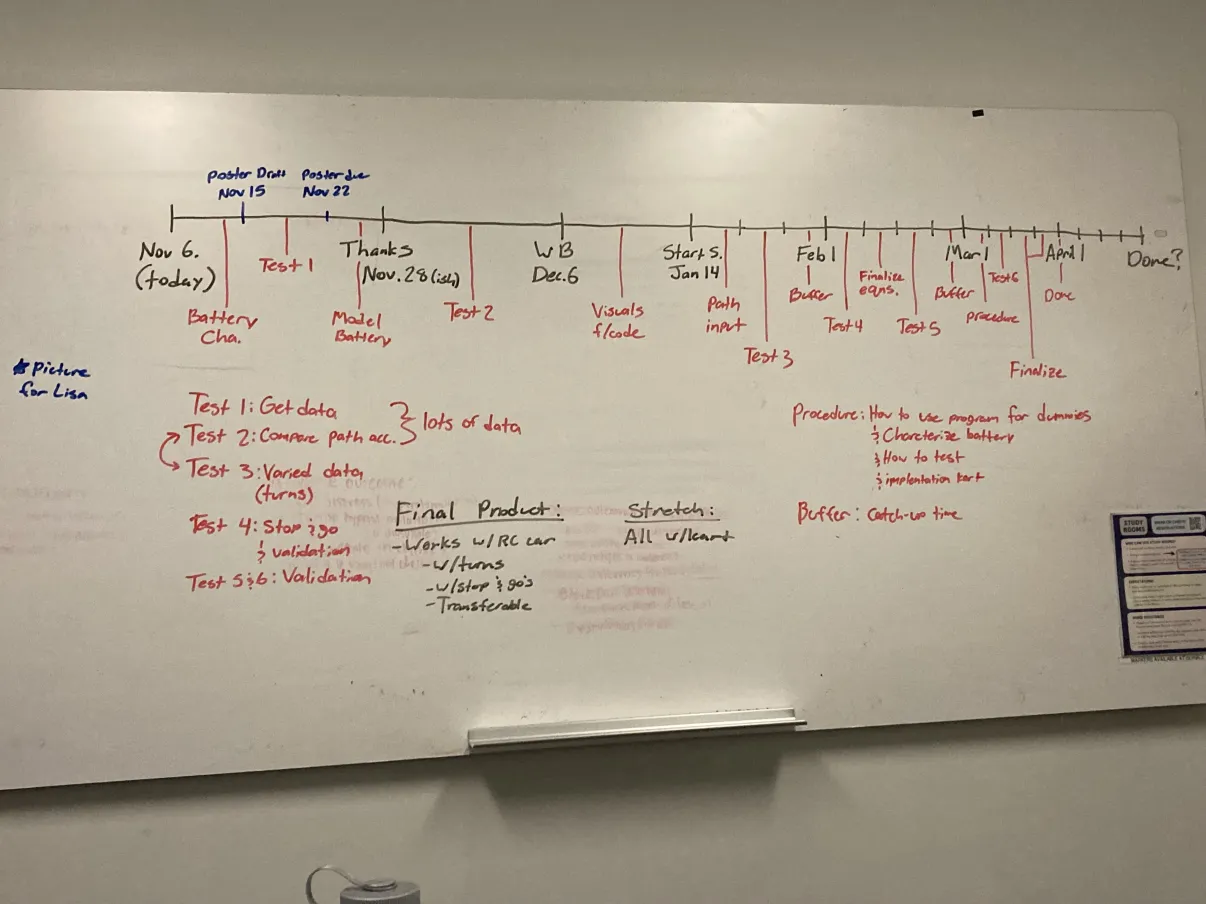 Poster Draft
Nov 15
Poster due
Nov 22
Nov 6.
(today)
Thanks
Nov. 28 (ish)
WB
Dec. 6
Start S.
Jan 14
Feb 1
Mar 1
April 1
Done?
Battery
Cha.
Test 1
Model
Battery
Test 2
Visuals
f/code
Path
input
Test 3
Buffer
Test 4
Finalize
eqns.
Test 5
Buffer
Procedure
Test 6
Finalize
Done
Picture
for Lisa
Test 1: Get data
Test 2: Compare path acc.
lots of data
Test 3: Varied data
(turns)
Test 4: Stop & go
& validation
Test 5 & 6: Validation
Final Product:
- Works w/ RC car
- w/turns
- w/stop & go's
- Transferable
Stretch:
All w/kart
Procedure: How to use program for dummies
& Charcterize battery
& How to test
& implentation kart
Buffer: Catch-up time
STUDY
ROOMS